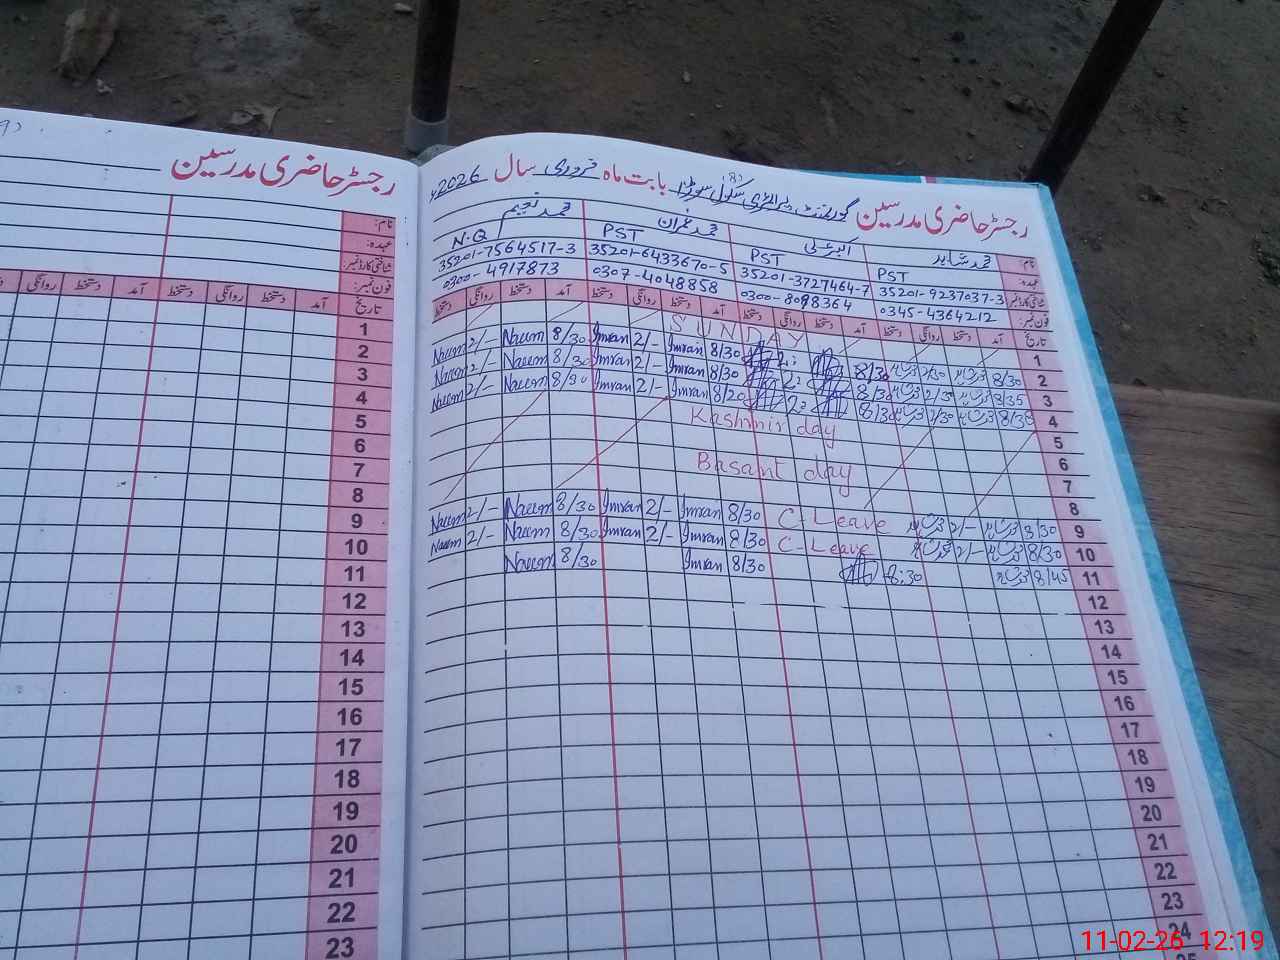 رجسٹر حاضری مدرسین
نام:
عہدہ:
شناختی کارڈ نمبر:
فون نمبر:
تاریخ آمد دستخط روانگی دستخط آمد دستخط روانگی
1
2
3
4
5
6
7
8
9
10
11
12
13
14
15
16
17
18
19
20
21
22
23
رجسٹر حاضری مدرسین گورنمنٹ پرائمری سکول بابت ماہ فروری سال 2026ء
نام: محمد شاہد اکبر علی محمد عمران محمد نعیم
عہدہ: PST PST PST N-Q
شناختی کارڈ نمبر: 35201-9237037-3 35201-3727464-7 35201-6433670-5 35201-7564517-3
فون نمبر: 0345-4364212 0300-8098364 0307-4048858 0300-4917873
تاریخ آمد دستخط روانگی دستخط آمد دستخط روانگی دستخط آمد دستخط روانگی دستخط آمد دستخط روانگی دستخط
1 SUNDAY
2 8/30 2/30 8/30 2: 8/30 Imran 2/- Imran 8/30 Naeem 2/- Naeem
3 8/35 8/30 2: 8/30 Imran 2/- Imran 8/30 Naeem 2/- Naeem
4 8/35 2/30 8/30 2: 8/20 Imran 2/- Imran 8/30 Naeem 2/- Naeem
5 Kashmir day
6
7 Basant day
8
9 8/30 2/- C-Leave 8/30 Imran 2/- Imran 8/30 Naeem 2/- Naeem
10 8/30 2/- C-Leave 8/30 Imran 2/- Imran 8/30 Naeem 2/- Naeem
11 8/45 8:30 8/30 Imran 8/30 Naeem
12
13
14
15
16
17
18
19
20
21
22
23
24
11-02-26 12:19